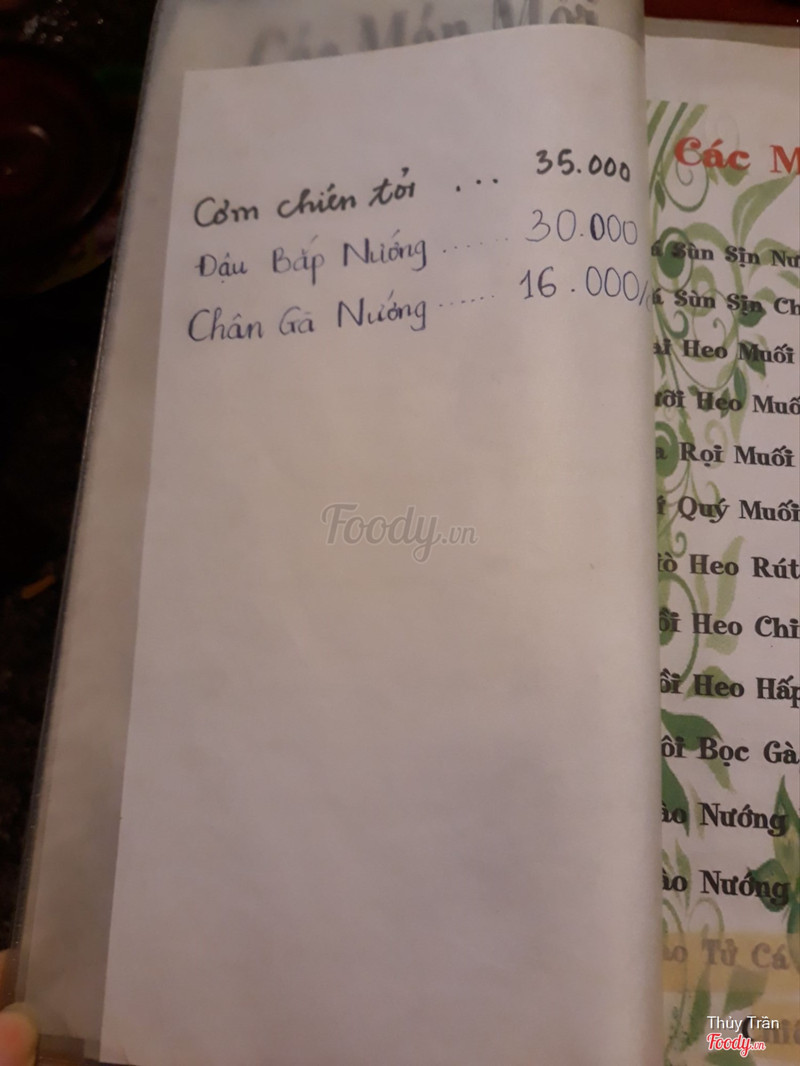 Các Món Mới
Cơm chiên tỏi ... 35.000
Đậu Bắp Nướng ........ 30.000
Chân Gà Nướng ...... 16.000/
Các M
Sùn Sịn Nư
Sùn Sịn Ch
Heo Muối
Heo Muố
Rọi Muối
Quý Muối
Heo Rút
Heo Chi
Heo Hấp
Bọc Gà
Nướng
Nướng
Tử Cá
Foody.vn
Thủy Trần
Foody.vn